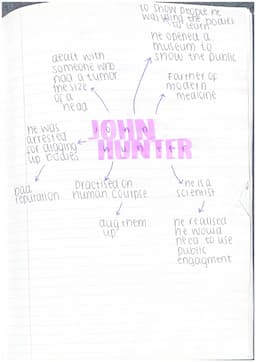 to show people he
was using the bodies
to learn
he opened a
museum to
show the public
dealt with
someone who
had a tumor
the size
of a
head
Farther of
modern
medicine
JOHN
HUNTER
he was
arrested
for digging
up bodies
bad
reputation
practised on
human courpse
dug them
up
he is a
scientist
he realised
he would
need to use
public
engagment